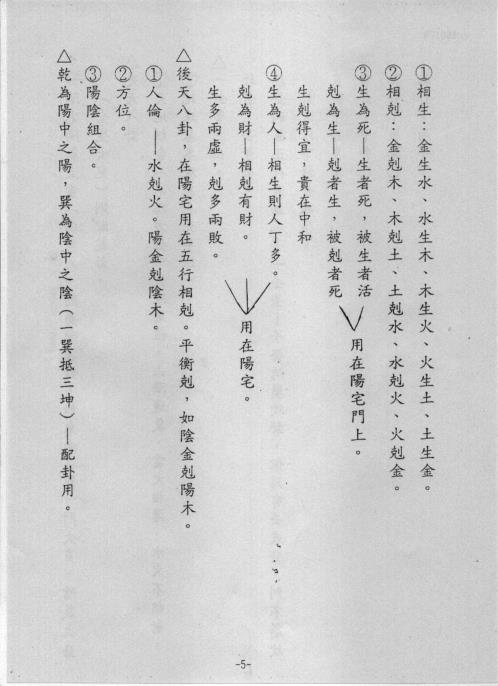 ①相生：金生水、水生木、木生火、火生土、土生金。
②相剋：金剋木、木剋土、土剋水、水剋火、火剋金。
③生為死—生者死，被生者活
剋為生—剋者生，被剋者死
用在陽宅門上。
生剋得宜，貴在中和
④生為人—相生則人丁多。
剋為財—相剋有財。
用在陽宅。
生多兩虛，剋多兩敗。
△後天八卦，在陽宅用在五行相剋。平衡剋，如陰金剋陽木。
①人倫——水剋火。陽金剋陰木。
②方位。
③陽陰組合。
△乾為陽中之陽，巽為陰中之陰（一巽抵三坤）—配卦用。
-5-